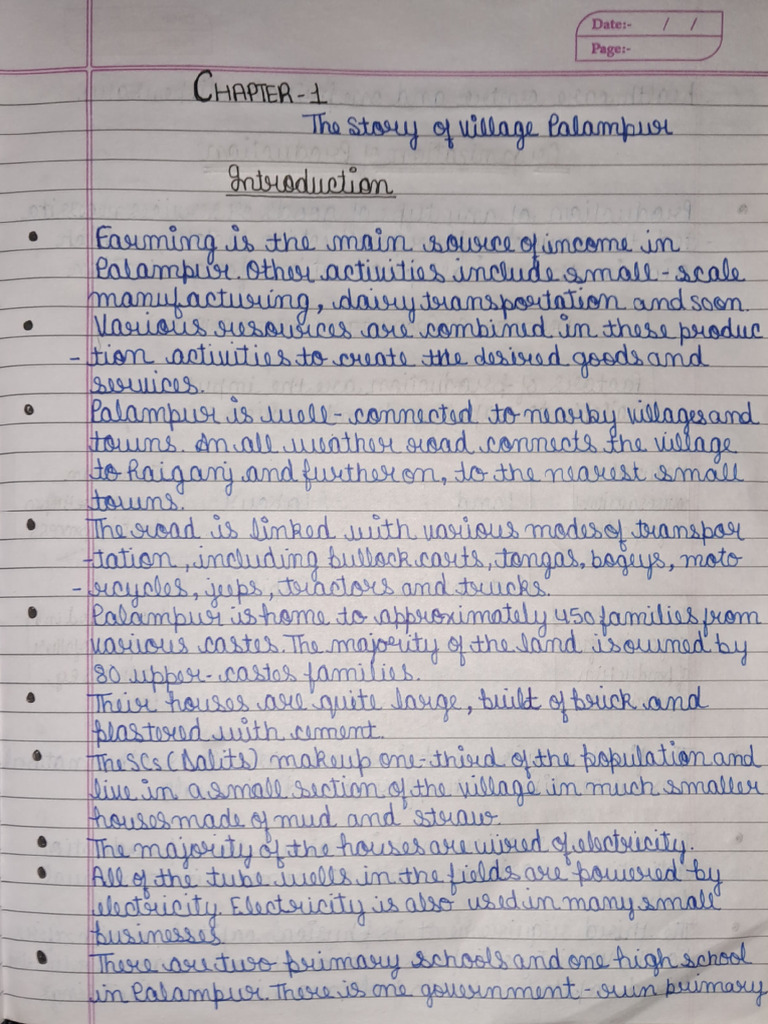 Date:- / /
Page:-
CHAPTER-1
The Story of Village Palampur
Introduction
• Farming is the main source of income in
Palampur. Other activities include small-scale
manufacturing, dairy, transportation and soon.
• Various resources are combined in these produc
- tion activities to create the desired goods and
services.
• Palampur is well-connected to nearby villages and
towns. An all weather road connects the village
to Raiganj and further on, to the nearest small
towns.
• The road is linked with various modes of transpor
-tation, including bullock carts, tongas, bogeys, moto
- rcycles, jeeps, tractors and trucks.
• Palampur is home to approximately 450 families from
various castes. The majority of the land is owned by
80 upper-castes families.
• Their houses are quite large, built of brick and
plastered with cement.
• The SCs (Dalits) makeup one-third of the population and
live in a small section of the village in much smaller
houses made of mud and straw.
• The majority of the houses are wired of electricity.
• All of the tube wells in the fields are powered by
electricity. Electricity is also used in many small
businesses.
• There are two primary schools and one high school
in Palampur. There is one government-run primary